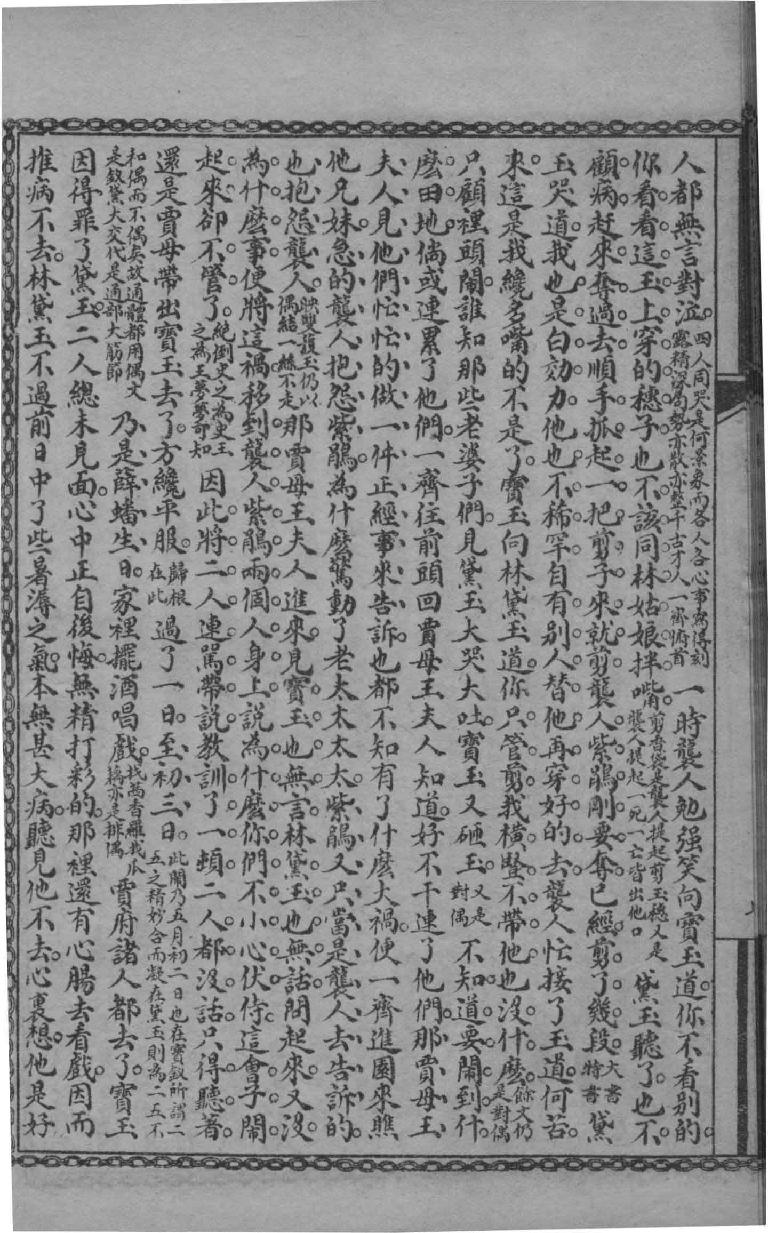 人都無言對泣。四人同哭是何景象而各人各心事寫得刻露精深局勢亦散亦整千古才人一齊俯首一時襲人勉强笑向寶玉道你不看别的
你看看這玉上穿的穗子也不該同林姑娘拌嘴。剪香袋是襲人提起剪玉穗又是襲人提起一死一亡皆出他口黛玉聽了也不
顧病赶來奪過去順手抓起一把剪子來就剪襲人紫鵑剛要奪已經剪了幾段。大書特書黛
玉哭道我也是白効力他也不稀罕自有别人替他再穿好的去襲人忙接了玉道何苦
來這是我纔多嘴的不是了寶玉向林黛玉道你只管剪我橫豎不帶他也沒什麽。餘文仍是對偶
只顧裡頭鬧誰知那些老婆子們見黛玉大哭大吐寶玉又砸玉又是對偶不知道要鬧到什
麽田地倘或連累了他們一齊往前頭回賈母王夫人知道好不干連了他們。那賈母王
夫人見他們忙忙的做一件正經事來告訴也都不知有了什麽大禍便一齊進園來瞧
他兄妹急的襲人抱怨紫鵑為什麽驚動了老太太太太紫鵑又只當是襲人去告訴的
也抱怨襲人。映雙護玉仍以偶結一絲不走那賈母王夫人進來見寶玉也無言林黛玉也無話問起來又沒
為什麽事便將這禍移到襲人紫鵑兩個人身上說為什麽你們不小心伏侍這會子鬧
起來卻不管了。絶倒史之為史王之為王夢夢可知因此將二人連駡帶說教訓了一頓二人都沒話只得聽著
還是賈母帶出寶玉去了方纔平服。歸根在此過了一日至初三日。此鬧乃五月初二日也在寶釵所謂二五之精妙合而凝在黛玉則為二五不
和偶而不偶矣故通體都用偶文是釵黛大交代是通部大筋節乃是薛蟠生日家裡擺酒唱戲。找茜香羅找瓜藕亦是排偶賈府諸人都去了寶玉
因得罪了黛玉二人總未見面心中正自後悔無精打彩的那裡還有心腸去看戲因而
推病不去林黛玉不過前日中了些暑溽之氣本無甚大病聽見他不去心裏想他是好